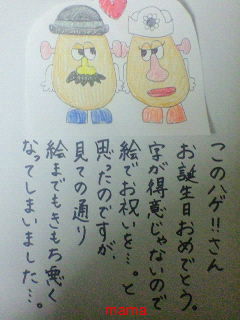 このハゲ!!さん
お誕生日おめでとう。
字が得意じゃないので
絵でお祝いを…。と
思ったのですが、
見ての通り
絵までもきもち悪く
なってしまいました…。
mama